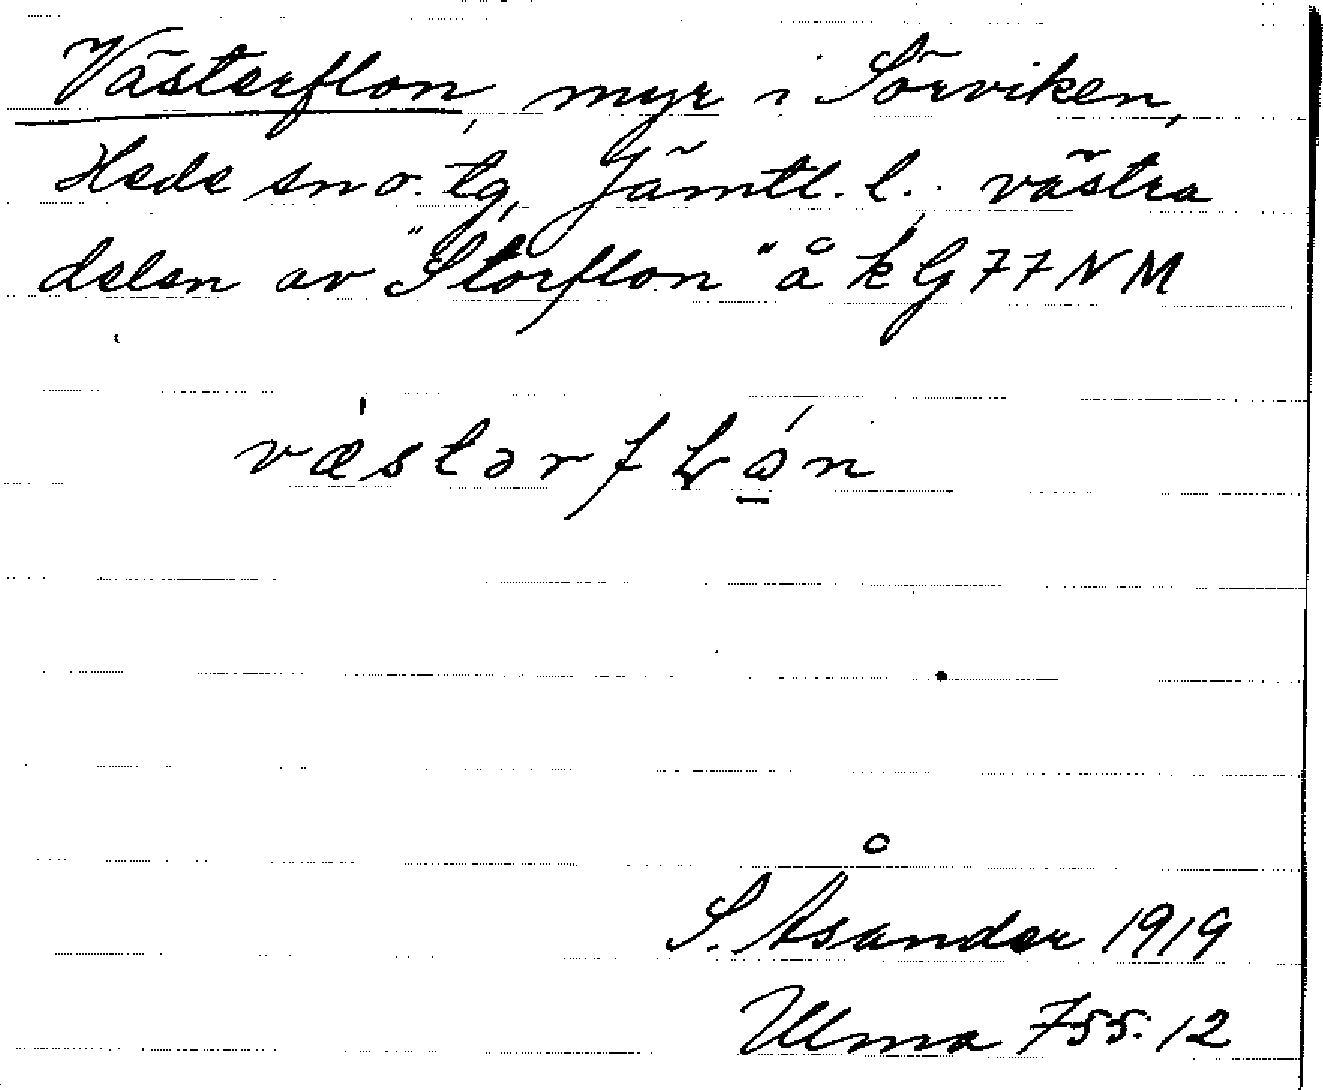 Västerflon, myr i Sörviken,
Hede sn o. tg, Jämtl. l. västra
delen av "Storflon" å k G77NM
væstərfLɔ́n
S. Åsander 1919
Ulma 755:12